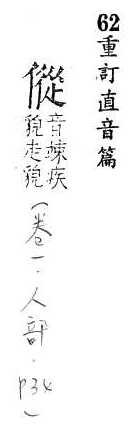 62重訂直音篇
傱
音竦疾
貌走貌
(卷一.人部.p34)